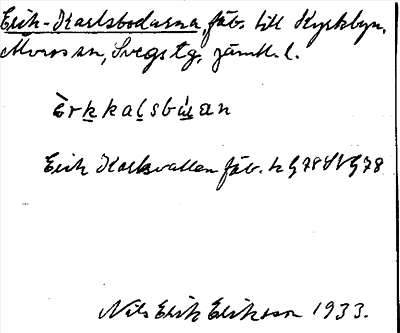 Erik-Karlsbodarna, fäb. till Kyrkbyn,
sn, Svegs tg, Jämtl. l.
Èrkkalsbùan
Erik Karlsvallen fäb. k G78SV G78
Nils Erik Eriksson 1933.